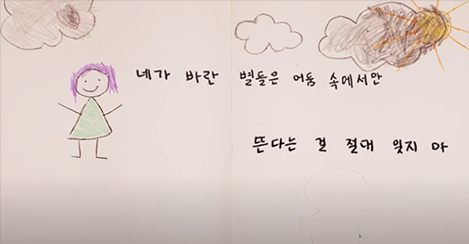 네가 바란 별들은 어둠 속에서만
뜬다는 걸 절대 잊지 마